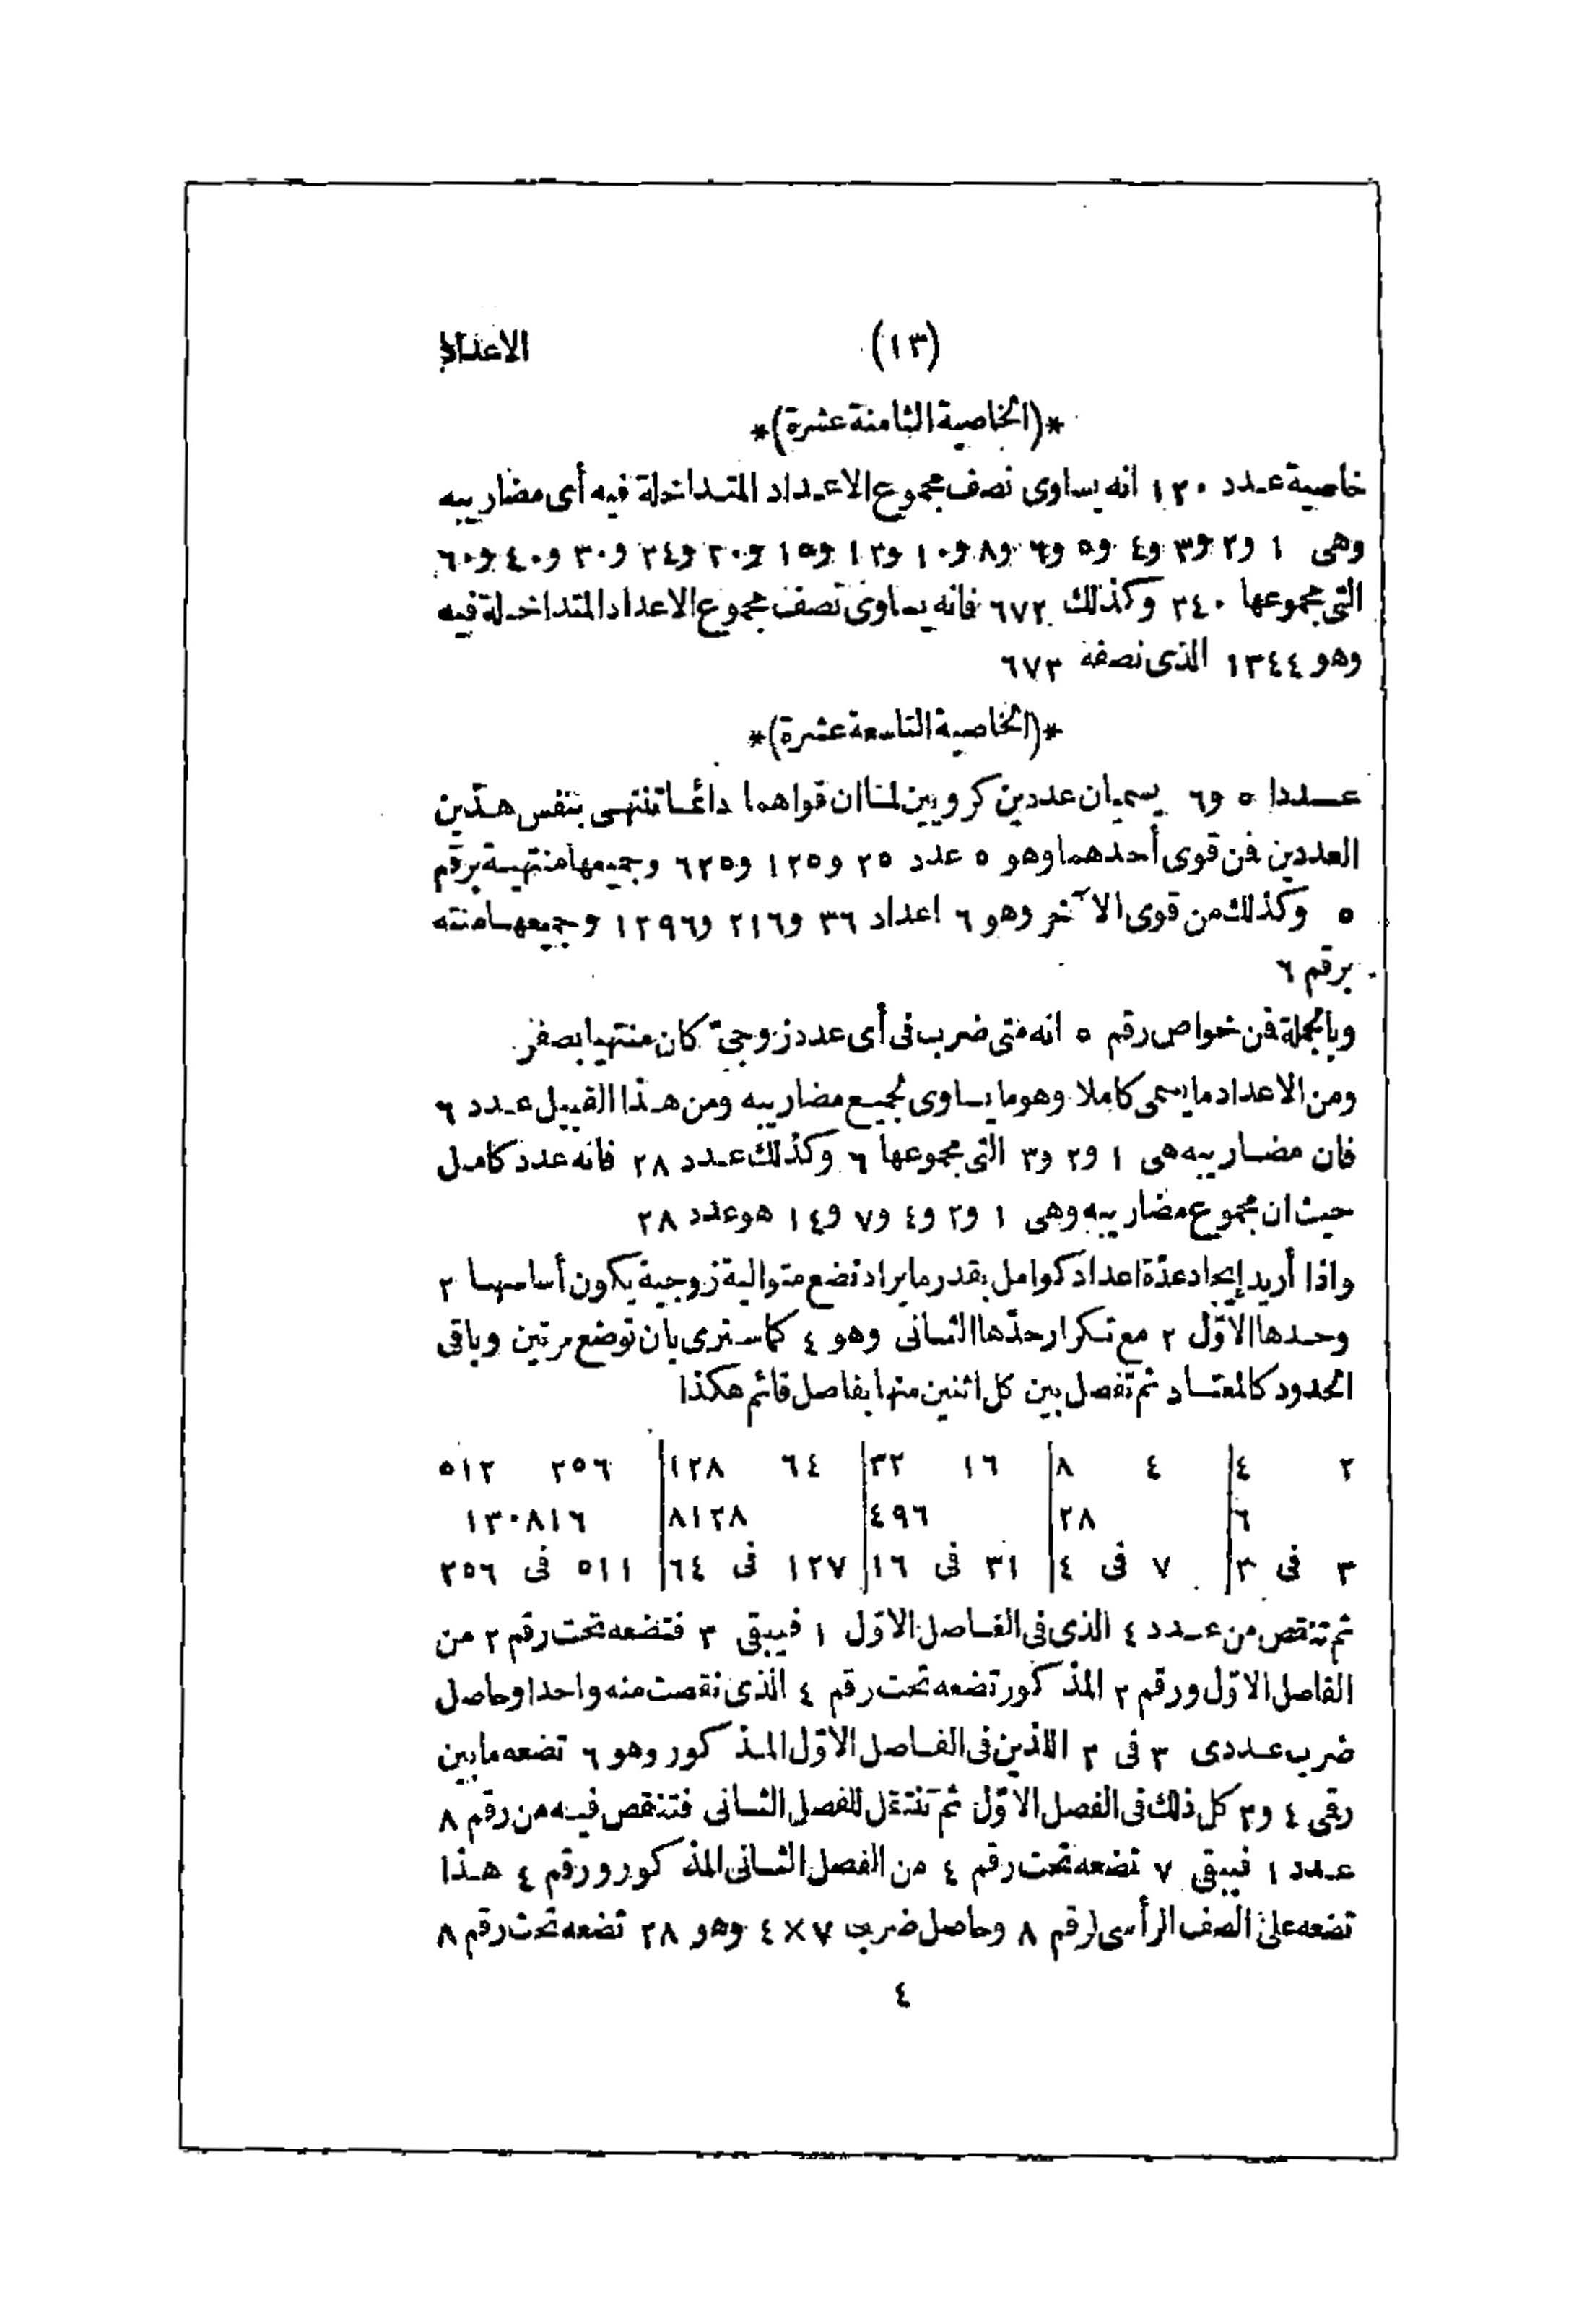 (١٣) الاعداد
*(الخاصية الثامنة عشرة)*
خاصية عدد ١٢٠ انه يساوى نصف مجموع الاعداد المتداخلة فيه أى مضاريبه
وهى ١ و٢ و٣ و٤ و٥ و٦ و٨ و١٠ و١٢ و١٥ و٢٠ و٢٤ و٣٠ و٤٠ و٦٠
التى مجموعها ٢٤٠ وكذلك ٦٧٢ فانه يساوى نصف مجموع الاعداد المتداخلة فيه
وهو ١٣٤٤ الذى نصفه ٦٧٢
*(الخاصية التاسعة عشرة)*
عددا ٥ و٦ يسميان عددين كرويين لما ان قواهما دائما تنتهى بنفس هذين
العددين فن قوى أحدهما وهو ٥ عدد ٢٥ و١٢٥ و٦٢٥ وجميعها منتهية برقم
٥ وكذلك من قوى الآخر وهو ٦ اعداد ٣٦ و٢١٦ و١٢٩٦ وجميعها منته
برقم ٦
وبالجملة فن خواص رقم ٥ انه متى ضرب فى أى عدد زوجىّ كان منتهيا بصفر
ومن الاعداد ما يسمى كاملا وهو ما يساوى لجميع مضاريبه ومن هذا القبيل عدد ٦
فان مضاريبه هى ١ و٢ و٣ التى مجموعها ٦ وكذلك عدد ٢٨ فانه عدد كامل
حيث ان مجموع مضاريبه وهى ١ و٢ و٤ و٧ و١٤ هو عدد ٢٨
واذا أريد إيجاد عدّة اعداد كوامل بقدر ما يراد تضع متوالية زوجية يكون أساسها ٢
وحدها الاوّل ٢ مع تكرار حدّها الثانى وهو ٤ كما سترى بان توضع مرتين وباقى
الحدود كالمعتاد ثم تفصل بين كل اثنين منها بفاصل قائم هكذا
٢ ٤| ٤ ٨| ١٦ ٣٢| ٦٤ ١٢٨| ٢٥٦ ٥١٢
٦| ٢٨| ٤٩٦| ٨١٢٨| ١٣٠٨١٦
٣ فى ٢| ٧ فى ٤| ٣١ فى ١٦| ١٢٧ فى ٦٤| ٥١١ فى ٢٥٦
ثم تنقص من عدد ٤ الذى فى الفاصل الاوّل ١ فيبقى ٣ فتضعه تحت رقم ٢ من
الفاصل الاوّل ورقم ٢ المذكور تضعه تحت رقم ٤ الذى نقصت منه واحدا وحاصل
ضرب عددى ٣ فى ٢ اللذين فى الفاصل الاوّل المذكور وهو ٦ تضعه ما بين
رقمى ٤ و٢ كل ذلك فى الفصل الاوّل ثم تنتقل للفصل الثانى فتنقص فيه من رقم ٨
عدد ١ فيبقى ٧ تضعه تحت رقم ٤ من الفصل الثانى المذكور ورقم ٤ هذا
تضعه على الصف الرأسى لرقم ٨ وحاصل ضرب ٧ × ٤ وهو ٢٨ تضعه تحت رقم ٨
٤